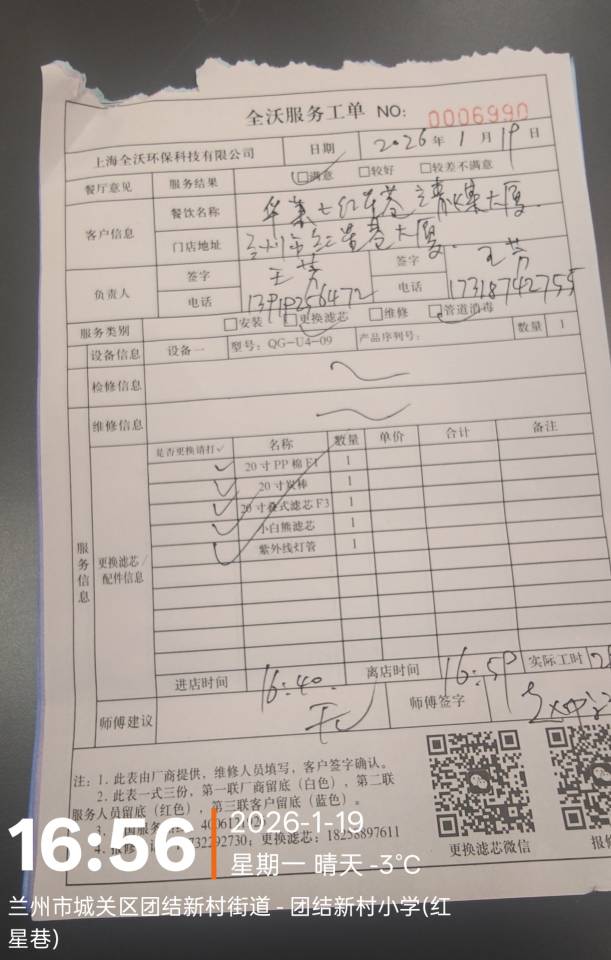 全沃服务工单 NO: 0006990
上海全沃环保科技有限公司 日期 2026年1月19日
餐厅意见 服务结果 □满意 □较好 □较差不满意
客户信息 餐饮名称
门店地址
负责人 签字 王芳 签字 王芳
电话 电话 17318742755
服务类别 □安装 □更换滤芯 □维修 □管道消毒
设备信息 设备一 型号: QG-U4-09 产品序列号: 数量 1
检修信息
维修信息
服务信息
更换滤芯/配件信息
是否更换请打✓ 名称 数量 单价 合计 备注
✓ 20寸PP棉F1 1
✓ 20寸炭棒 1
✓ 20寸叠式滤芯F3 1
✓ 小白熊滤芯 1
✓ 紫外线灯管 1
进店时间 16:40 离店时间 16:50 实际工时
师傅建议 师傅签字
注: 1. 此表由厂商提供，维修人员填写，客户签字确认。
2. 此表一式三份，第一联厂商留底（白色），第二联
服务人员留底（红色），第三联客户留底（蓝色）。
更换滤芯: 18258897611
更换滤芯微信
16:56
2026-1-19
星期一 晴天 -3℃
兰州市城关区团结新村街道 - 团结新村小学(红
星巷)